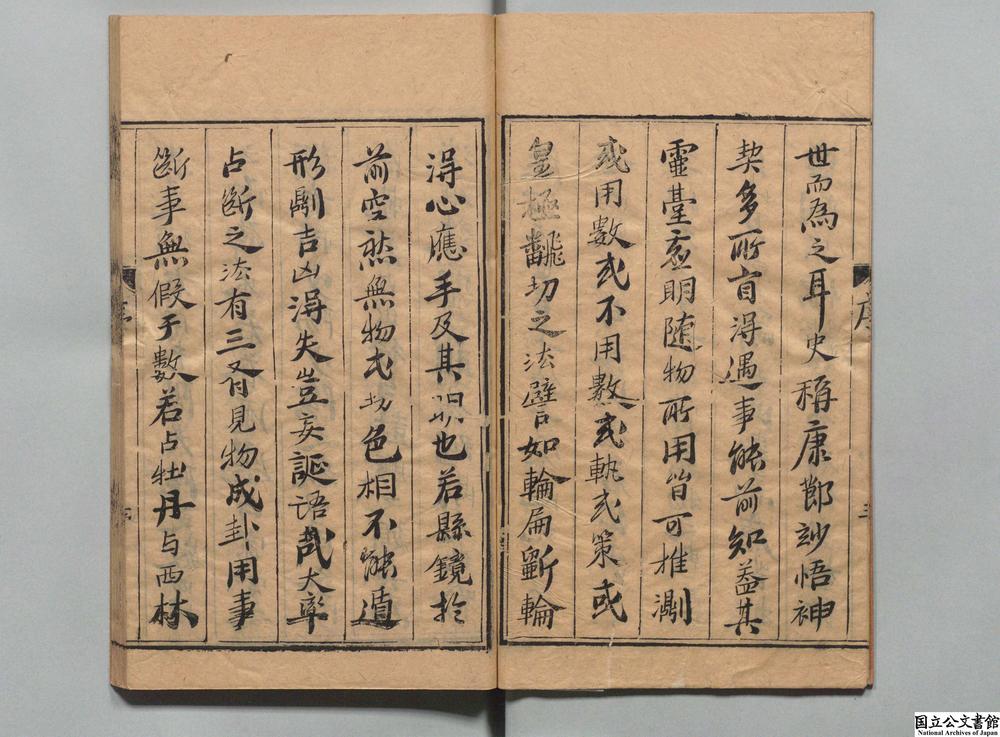 世而為之耳史稱康節妙悟神
契多所自得遇事能前知蓋其
靈臺空明随物所用皆可推測
或用數或不用數或軌或策或
皇極 切之法譬如輪扁斵輪
得心應手及其 也若縣鏡扵
前空然無物或 色相不能遁
形則吉凶得失豈妄誕语哉大率
占断之法有三有見物成卦用事
断事無假于數若占牡丹与西林
序
三
国立公文書館
National Archives of Japan